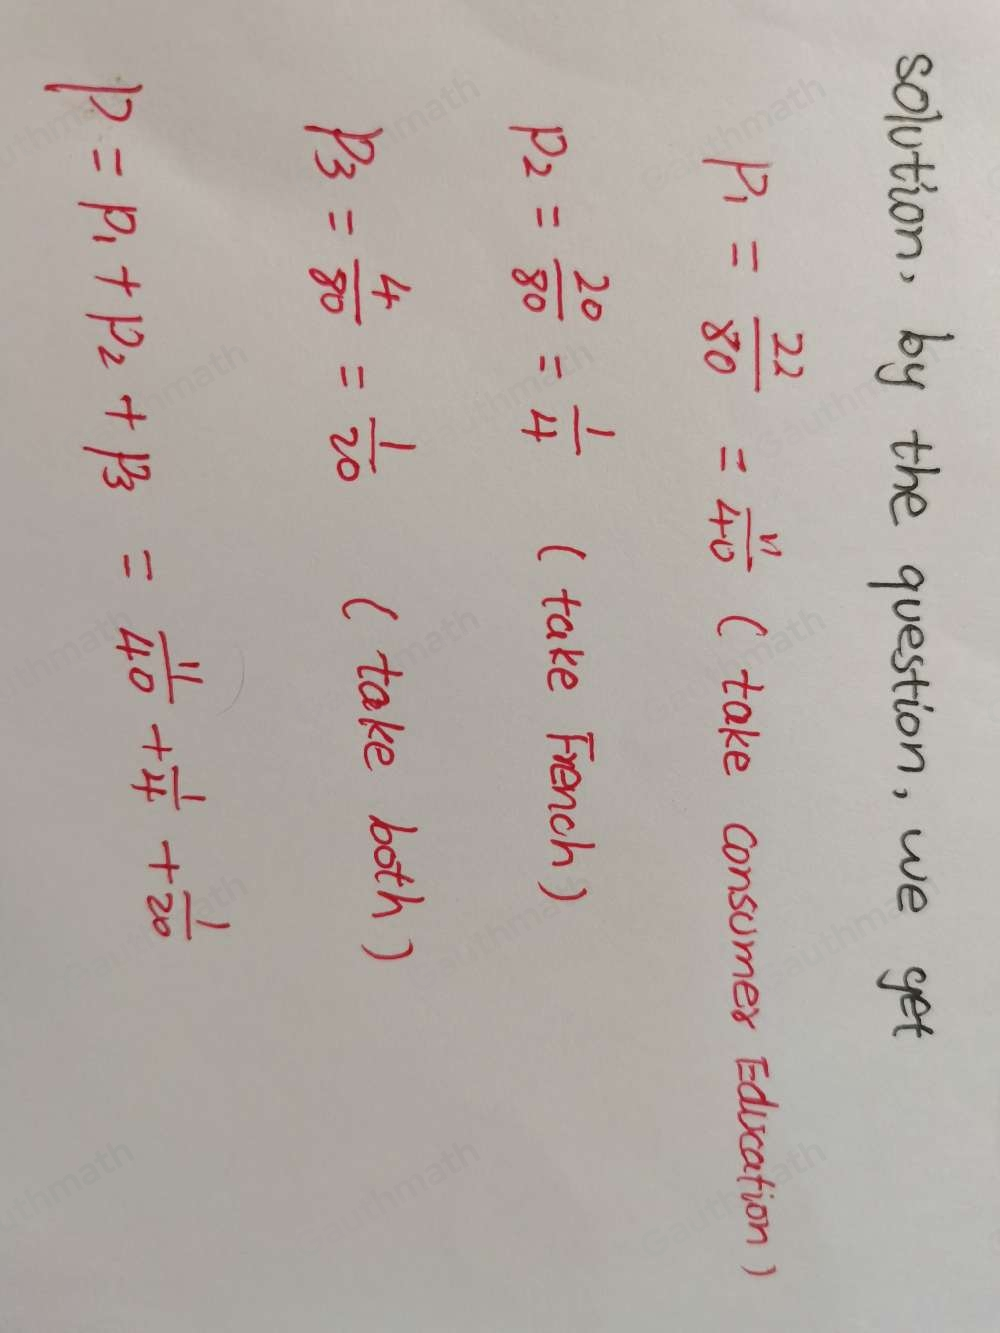 solution, by the question, we get
P₁ = 22/80 = 11/40 (take Consumer Education)
P₂ = 20/80 = 1/4 (take French)
P₃ = 4/80 = 1/20 (take both)
P = P₁ + P₂ + P₃ = 11/40 + 1/4 + 1/20